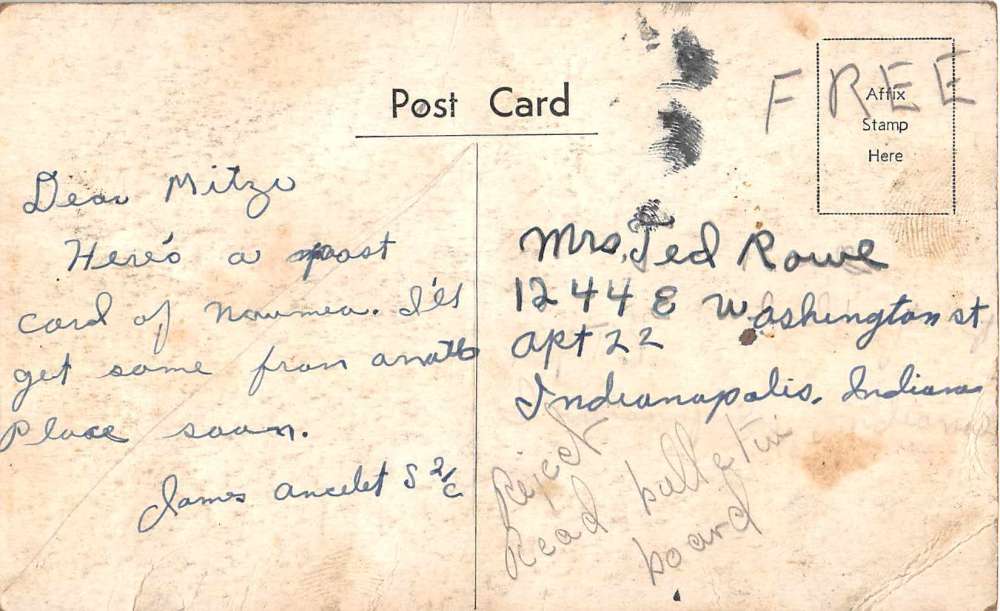 Post Card
FREE
Affix
Stamp
Here
Dear Mitzi
Here's a post
card of Noumea. I'll
get some from anoth
Place soon.
James Ancelet S 2/c
Mrs. Ted Rowe
1244 E Washington st
apt 22
Indianapolis, Indiana
Reject
Read bulletin
board